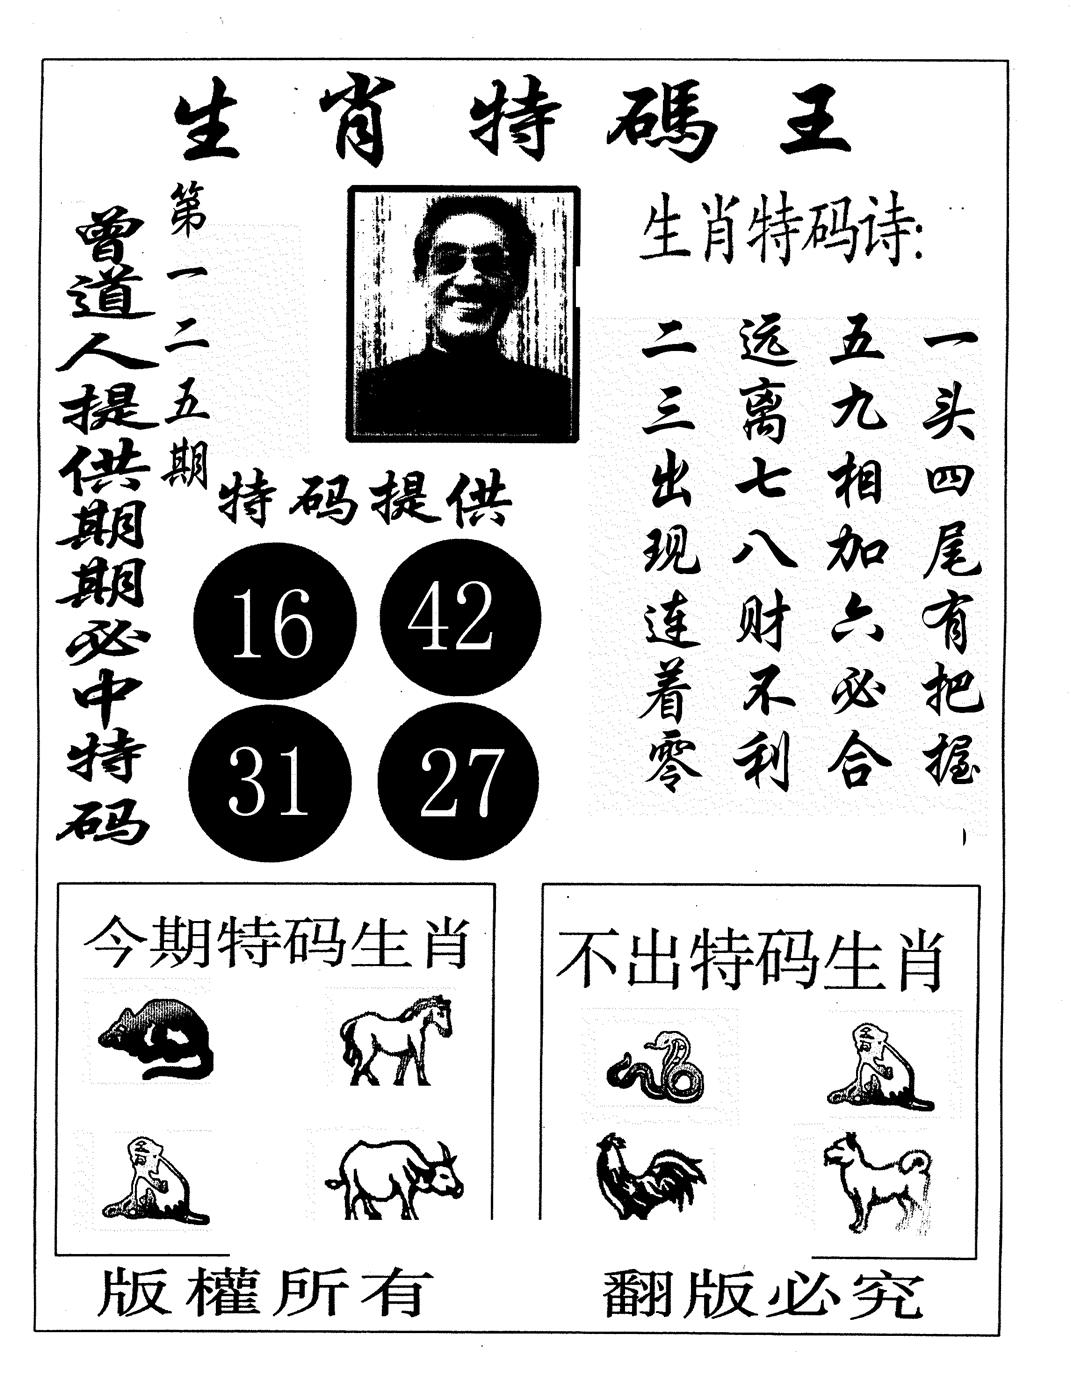 生肖特碼王
第一二五期
曾道人提供期期必中特码
生肖特码诗:
一头四尾有把握
五九相加六必合
远离七八财不利
二三出现连着零
特码提供
16 42
31 27
今期特码生肖
不出特码生肖
版權所有
翻版必究